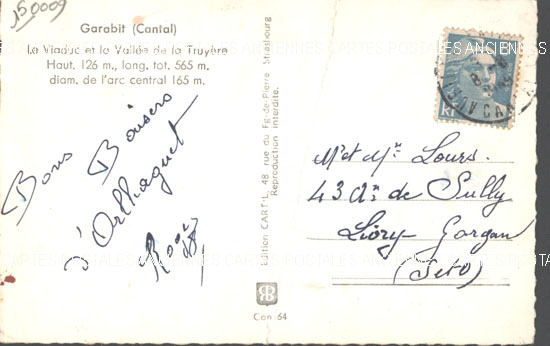 150009
Garabit (Cantal)
Le Viaduc et la Vallée de la Truyère
Haut. 126 m., long. tot. 565 m.
diam. de l'arc central 165 m.
Bons Baisers
d'Orlhaguet
Edition CART'L, 48, rue du Fg-de-Pierre, Strasbourg
Reproduction interdite.
Mr et Me Lours.
43 Av. de Sully
Livry-Gargan
(S et O)
Can 64
CARTES POSTALES ANCIENNES